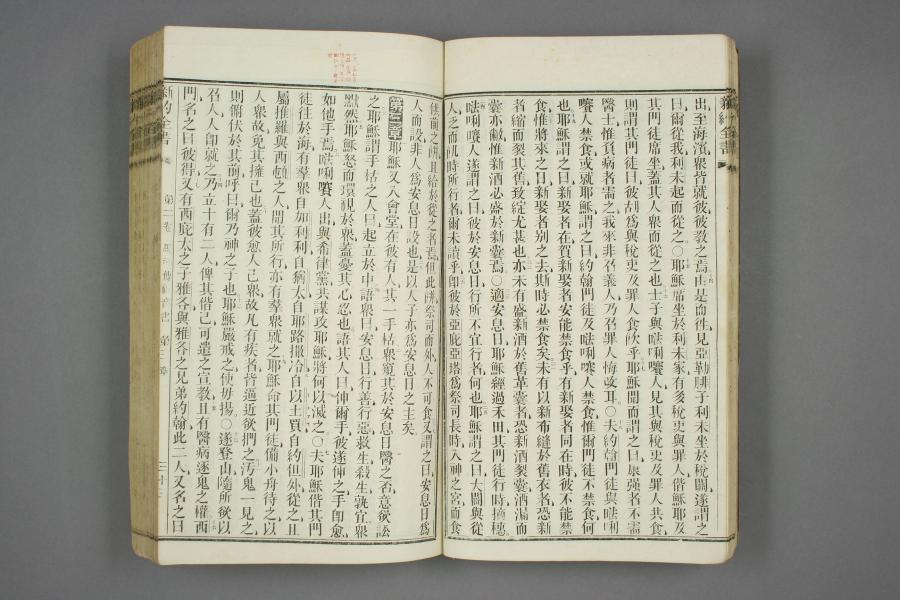 新約全書
出至海濱眾皆就彼彼教之焉由是而往見亞勒腓子利未坐於稅關遂謂之
曰爾從我利未起而從之○耶穌席坐於利未家有多稅吏與罪人偕耶穌及
其門徒席坐蓋其人眾而從之也士子與𠵽唎㘔人見其與稅吏及罪人共食
則謂其門徒曰彼胡與稅吏及罪人食飲乎耶穌聞而謂之曰康强者不需
醫士惟負病者需之我來非召義人乃召罪人悔改耳○夫約翰門徒與𠵽唎
人禁食或就耶穌謂之曰約翰門徒及𠵽唎人禁食惟爾門徒不禁食何
也耶穌謂之曰新娶者在賀新娶者安能禁食乎有新娶者同在時彼不能禁
食惟將來之日新娶者別之去斯時必禁食矣未有以新布縫於舊衣者恐新
者縮而裂其舊致綻尤甚也亦未有盛新酒於舊革囊者恐新酒裂囊酒漏而
囊亦敝惟新酒必盛於新囊焉○適安息日耶穌經過禾田其門徒行時摘穗
人遂謂之曰彼於安息日行所不宜行者何也耶穌謂之曰大闢與從
人乏而飢時所行者爾未讀乎卽彼於亞庇亞塔爲祭司長時入神之宮而食
供前之餅且給於從之者焉但此餅祭司而外人不可食又謂之曰安息日爲
人而設非人爲安息日設也是以人子亦爲安息日之主矣
第三章耶穌又入會堂在彼有人其一手枯眾窺其於安息日醫之否意欲訟
之耶穌謂手枯之人曰起立於中語眾曰安息日行善行惡救生殺生孰宜眾
默然耶穌怒而環視於眾蓋憂其心忍也語其人曰伸爾手彼遂伸之手卽愈
如他手焉人出與希律黨共謀攻耶穌將何以滅之○夫耶穌偕其門
徒往於海有羣眾自加利利自猶太自耶路撒冷自以土買自約但外從之且
屬推羅與西頓之人聞其所行亦有羣眾就之耶穌命其門徒備小舟待之以
人眾故免其擁己也蓋彼愈人已眾故凡有疾者皆逼近欲捫之汚鬼一見之
則俯伏於其前呼曰爾乃神之子也耶穌嚴戒之使毋揚○遂登山隨所欲以
召人人卽就之乃立十有二人俾其偕己可遣之宣教且有醫病逐鬼之權西
門名之曰彼得又有西庇太之子雅各與雅各之兄弟約翰此二人又名之曰
新約全書
第二卷
第三章